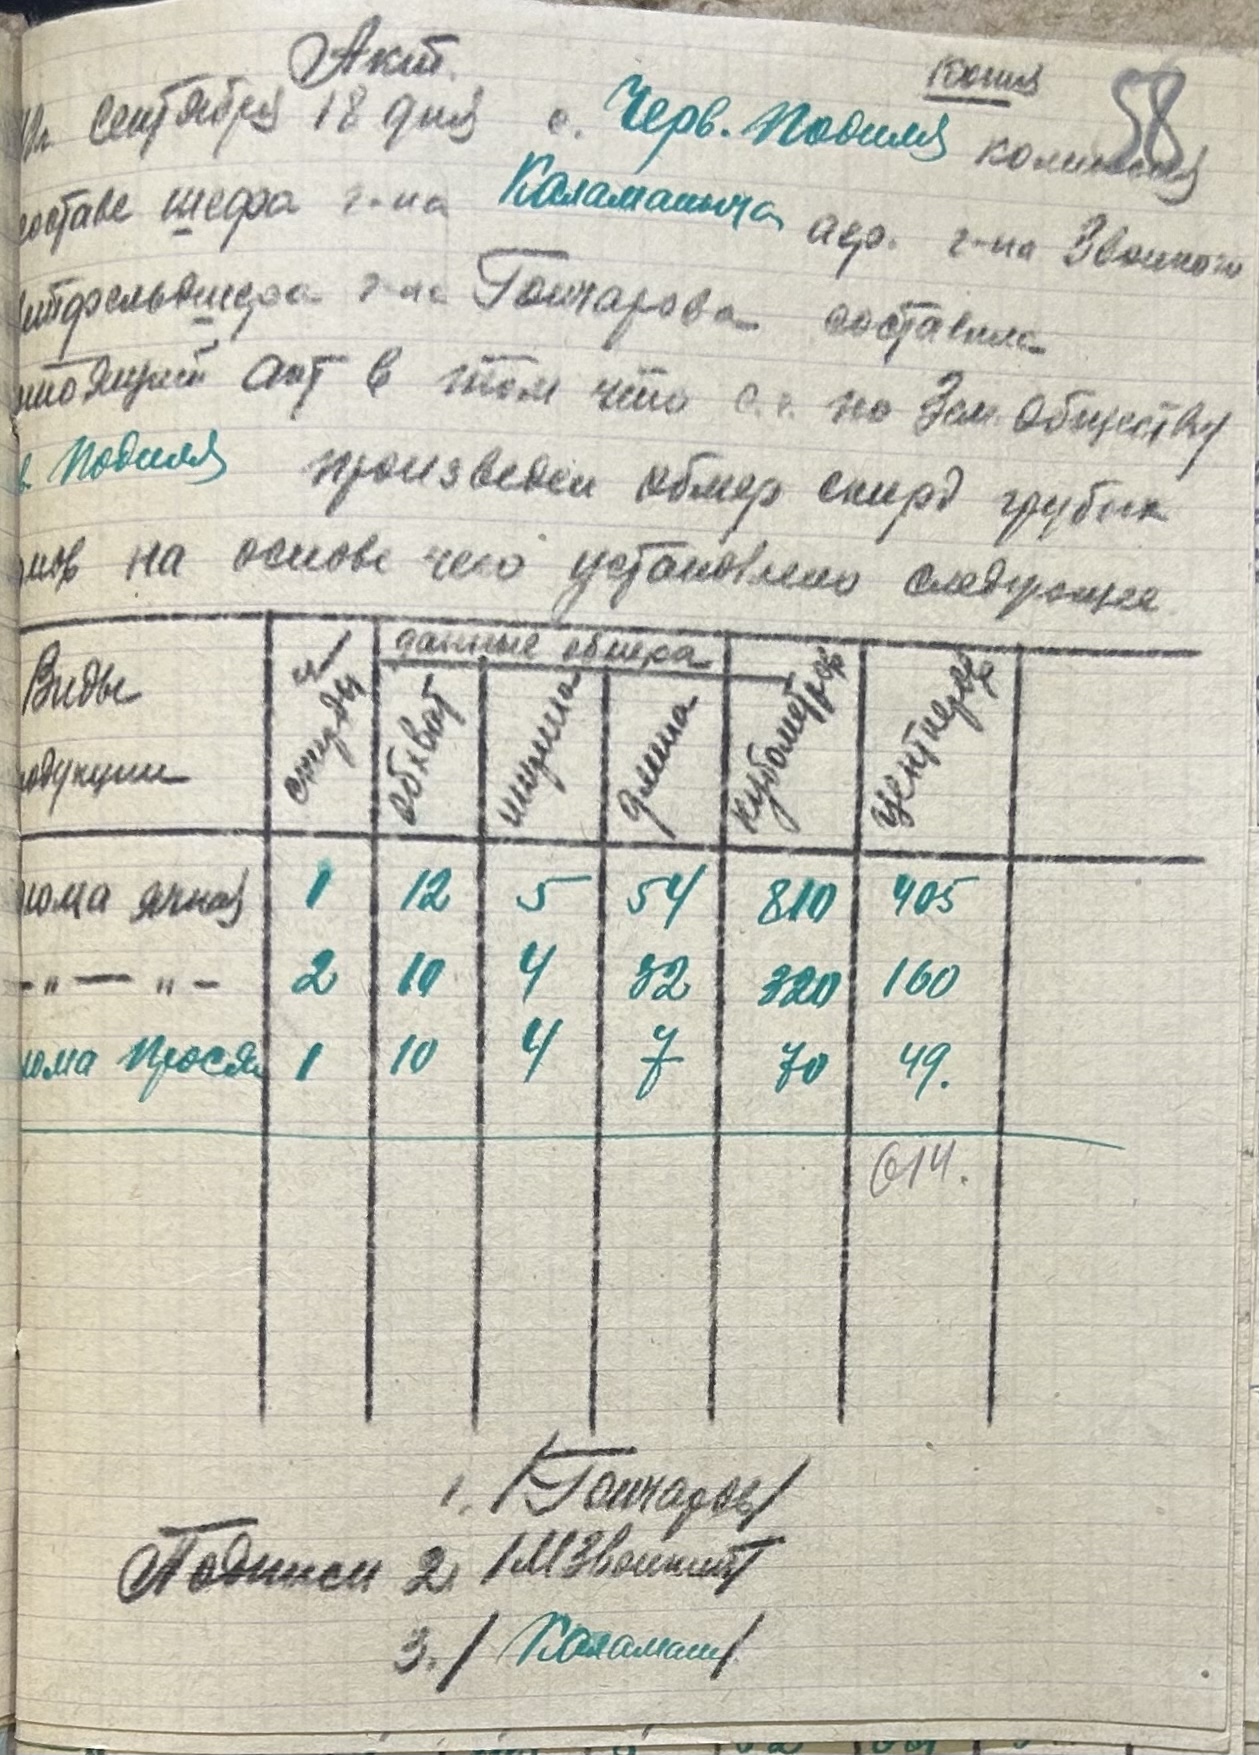 Акт.
копия
58
сентября 18 дня с. Черв. Подиля комиссия
составе шефа г-на Каламаныча агр. г-на Звонкого
ветфельдшера г-на Гончарова составила
настоящий акт в том что с.г. по Зем. обществу
Подиля произведен обмер скирд грубых
кормов на основе чего установлено следующее
данные обмера
Виды продукции
скирды обхват ширина длина кубометров центнеров
солома ячная 1 12 5 54 810 405
-„— „- 2 10 4 32 320 160
солома прося 1 10 4 7 70 49.
614.
1. /Гончаров/
Подписи 2. /М Звонкий/
3. /Каламан/